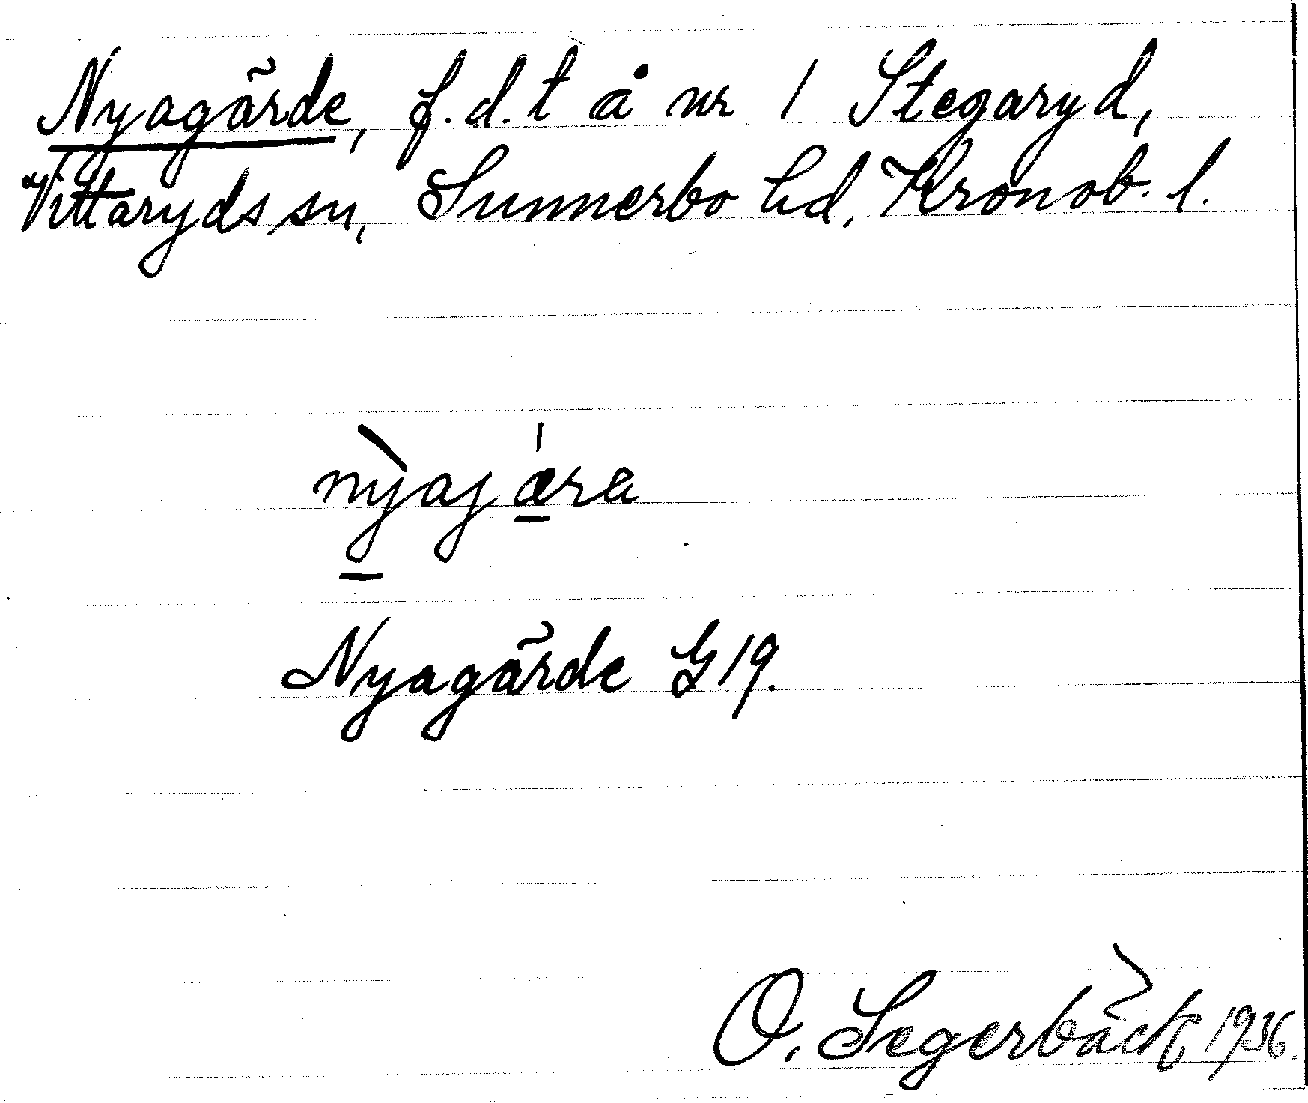 Nyagärde, f.d.t å nr 1 Stegaryd,
Vittaryds sn, Sunnerbo hd, Kronob. l.
nỳajǽ̲ra
Nyagärde G 19.
O. Segerbäck, 1936.